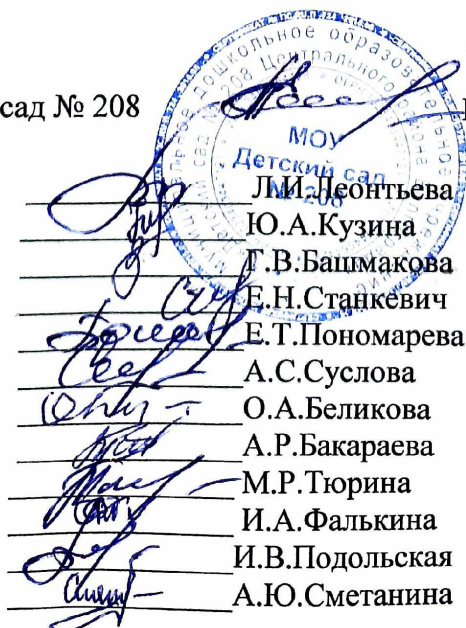 сад № 208
МОУ
Детский сад
№ 208
Л.И.Леонтьева
Ю.А.Кузина
Г.В.Башмакова
Е.Н.Станкевич
Е.Т.Пономарева
А.С.Суслова
О.А.Беликова
А.Р.Бакараева
М.Р.Тюрина
И.А.Фалькина
И.В.Подольская
А.Ю.Сметанина